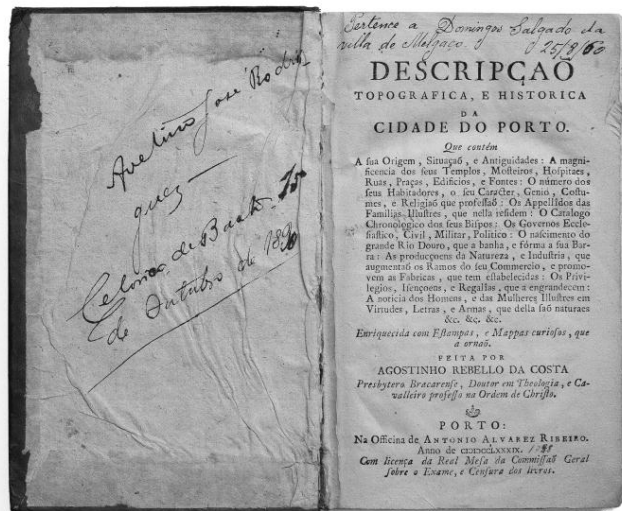 Avelino José Rodri-
guez
Celorico de Basto 15
de Outubro de 1890
Pertence a Domingos Salgado da
villa de Melgaço. 25/8/60
DESCRIPÇAÕ
TOPOGRAFICA, E HISTORICA
DA
CIDADE DO PORTO.
Que contém
A sua Origem, Situaçaõ, e Antiguidades: A magni-
ficencia dos seus Templos, Mosteiros, Hospitaes,
Ruas, Praças, Edificios, e Fontes: O número dos
seus Habitadores, o seu Caracter, Genio, Costu-
mes, e Religiaõ que professaõ: Os Appellidos das
Familias Illustres, que nella residem: O Catalogo
Chronologico dos seus Bispos: Os Governos Eccle-
siastico, Civil, Militar, Politico: O nascimento do
grande Rio Douro, que a banha, e fórma a sua Bar-
ra: As producçoens da Natureza, e Industria, que
augmentaõ os Ramos do seu Commercio, e promo-
vem as Fabricas, que tem estabelecidas: Os Privi-
legios, Isençoens, e Regalias, que a engrandecem:
A noticia dos Homens, e das Mulheres Illustres em
Virtudes, Letras, e Armas, que della saõ naturaes
&c. &c. &c.
Enriquecida com Estampas, e Mappas curiosos, que
a ornaõ.
FEITA POR
AGOSTINHO REBELLO DA COSTA
Presbytero Bracarense, Doutor em Theologia, e Ca-
valleiro professo na Ordem de Christo.
PORTO:
Na Officina de ANTONIO ALVAREZ RIBEIRO.
Anno de CIƆIƆCCLXXXIX.
Com licença da Real Mesa da Commissaõ Geral
sobre o Exame, e Censura dos livros.